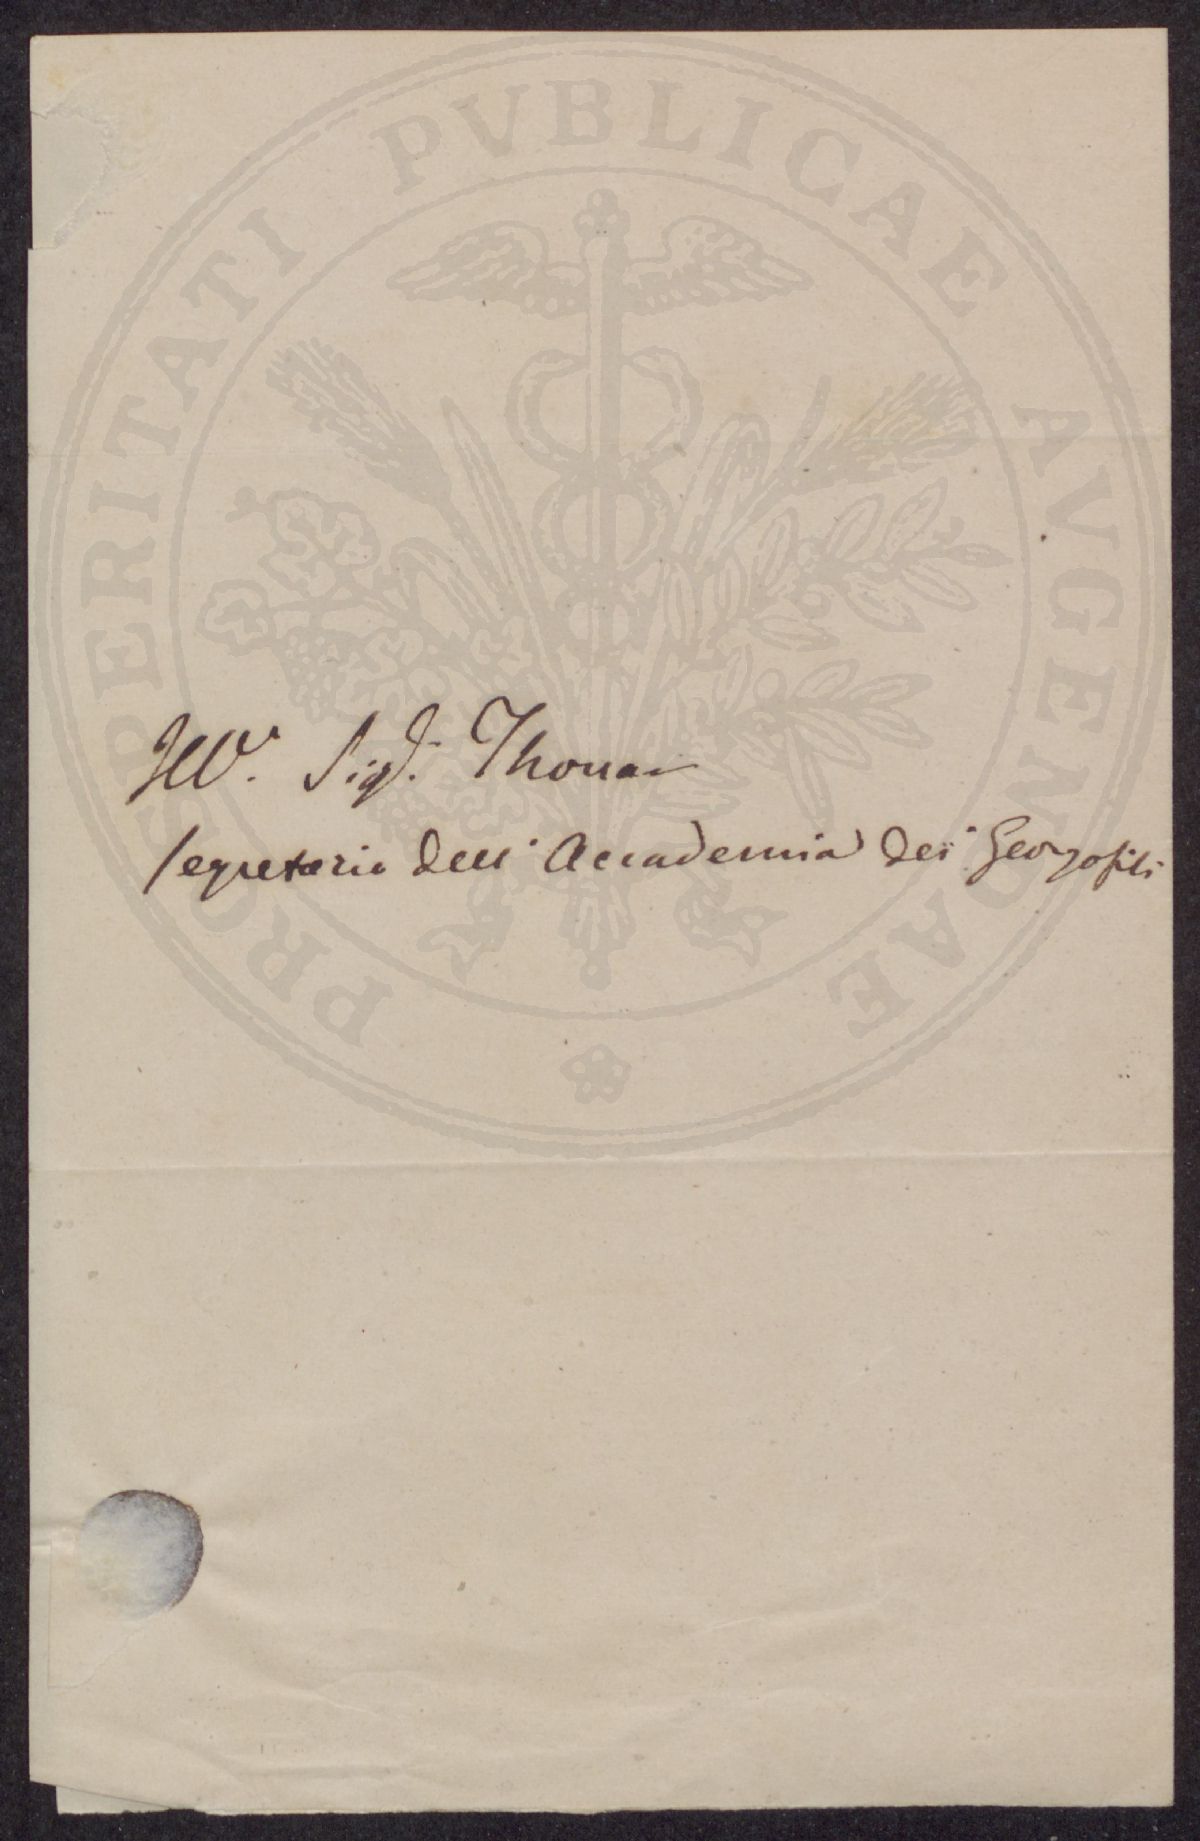 PROSPERITATI PVBLICAE AVGENDAE
Ill.ͫ Sig.ʳ Thouar
Segretario dell'Accademia dei Georgofili